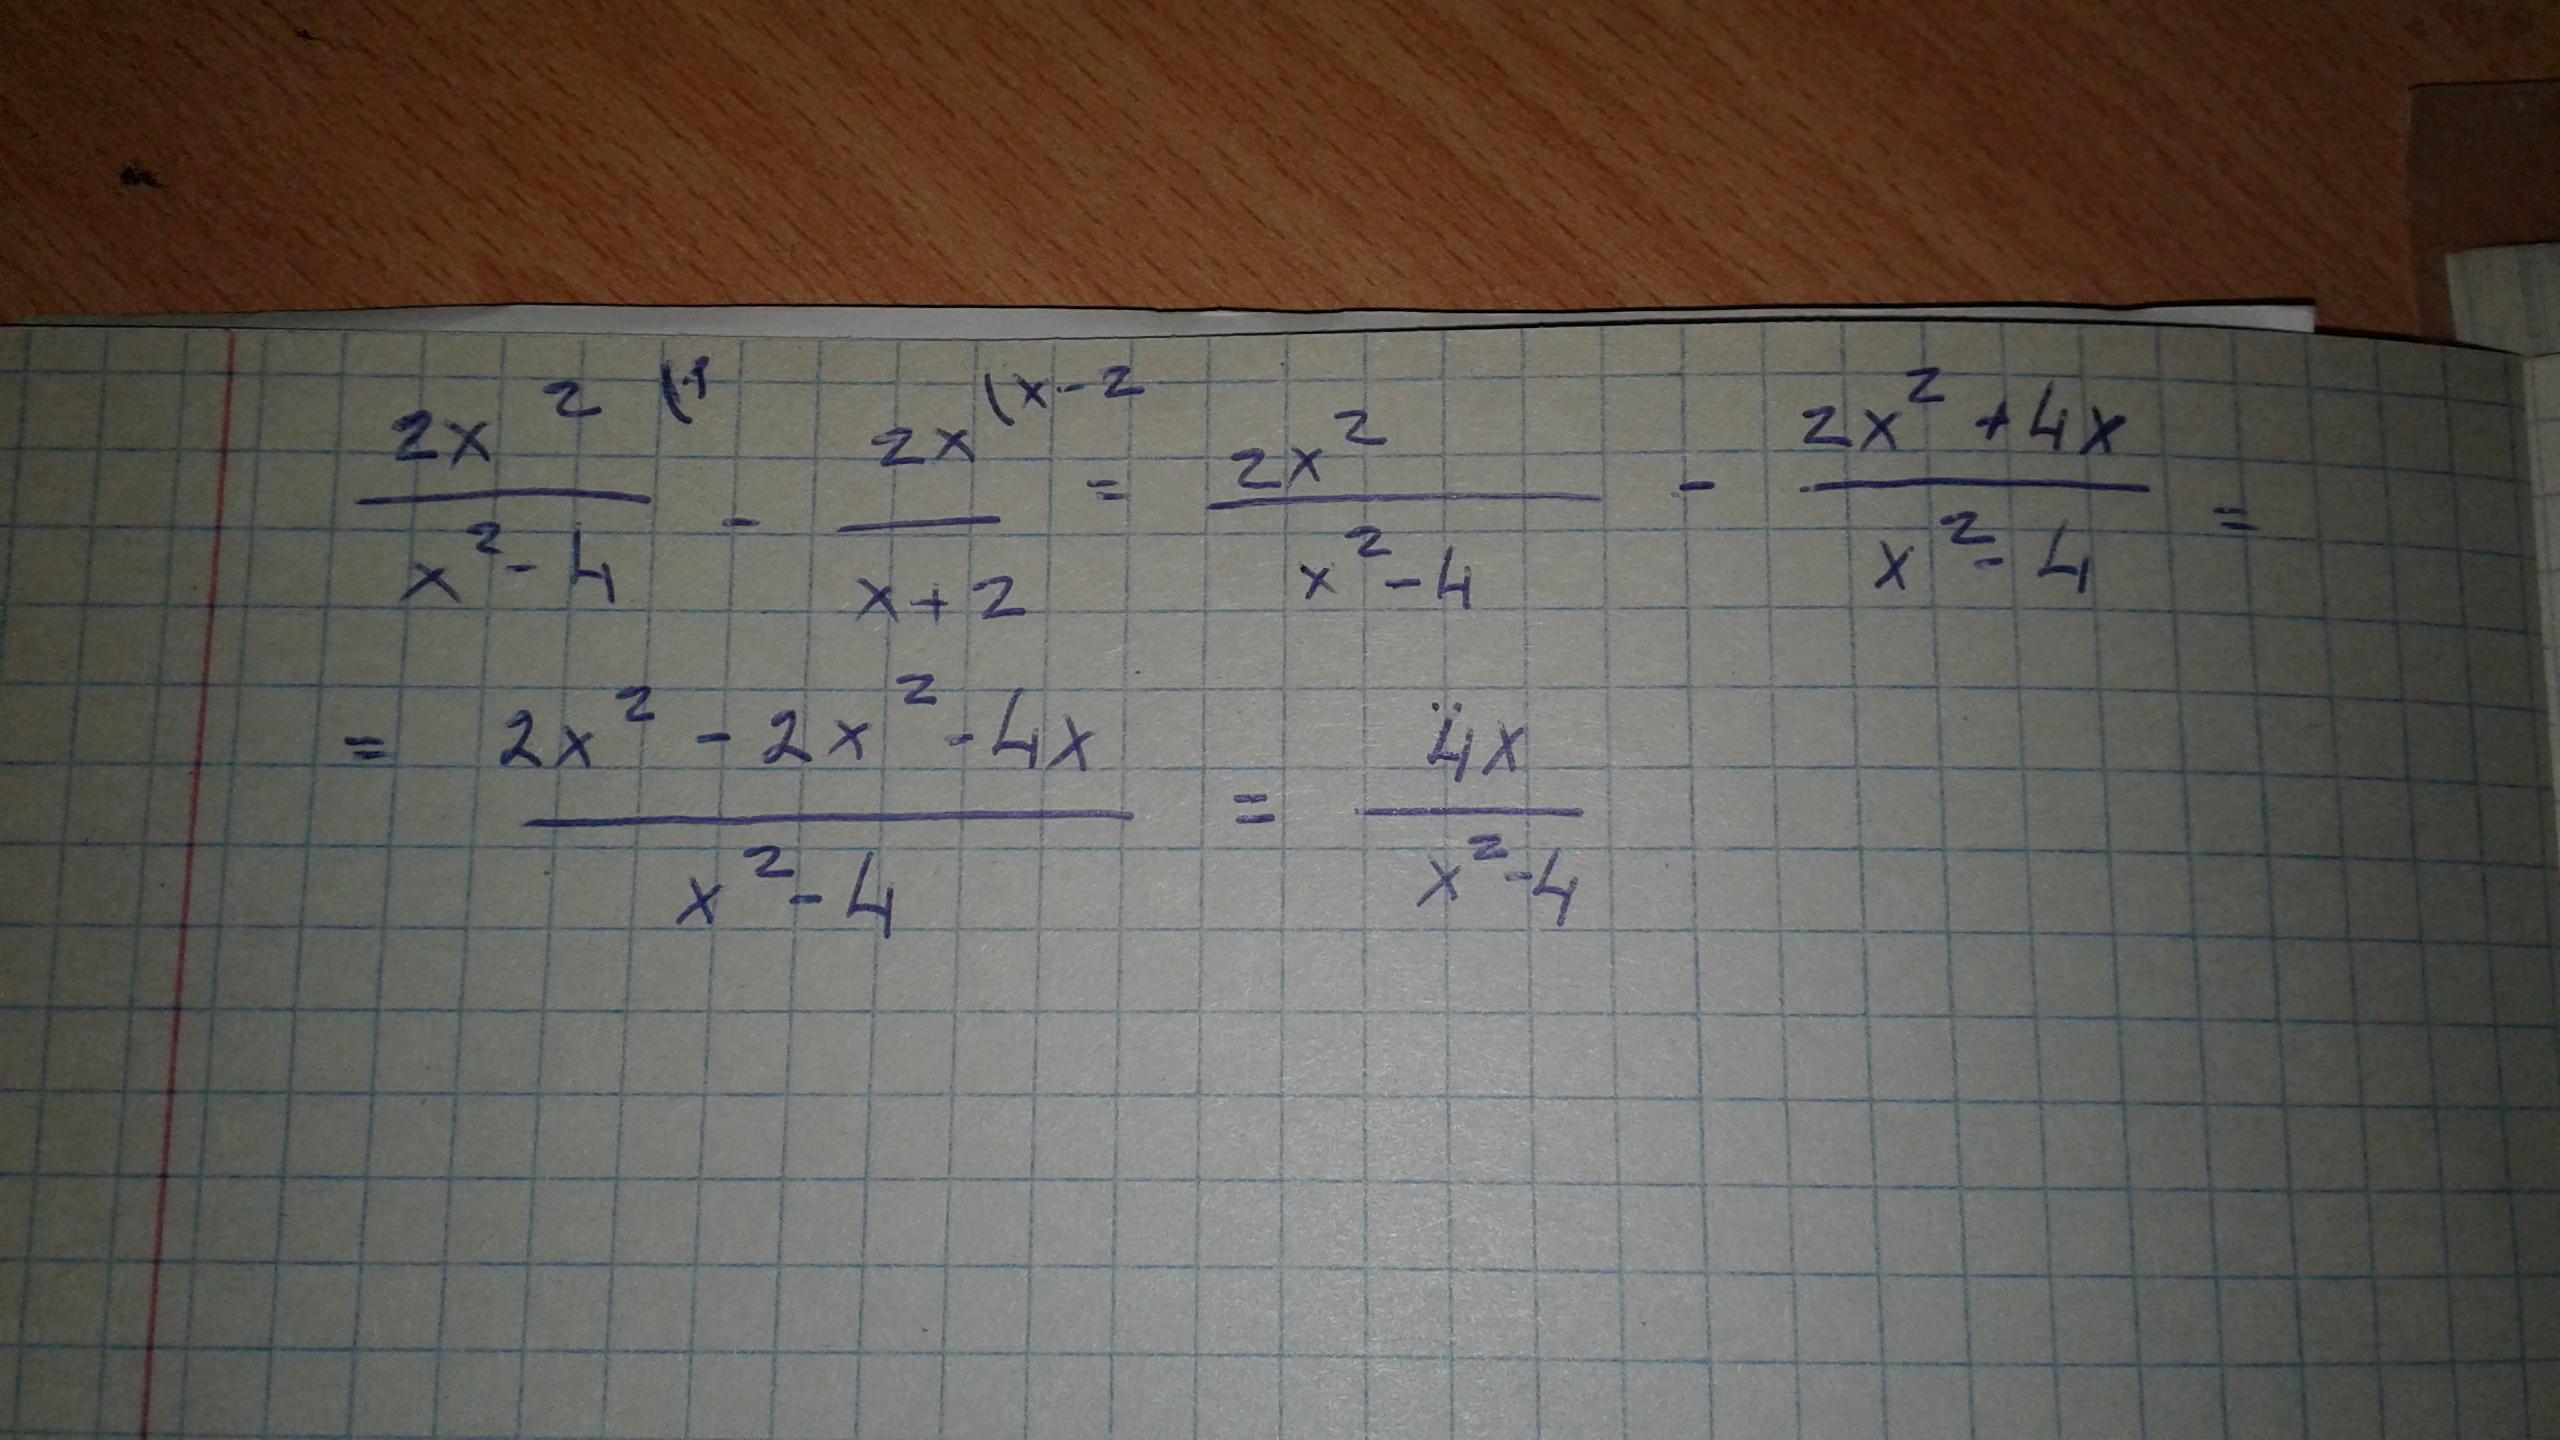 2x² (1 / x² - 4 - 2x (x - 2 / x + 2 = 2x² / x² - 4 - 2x² + 4x / x² - 4 =
= 2x² - 2x² - 4x / x² - 4 = 4x / x² - 4